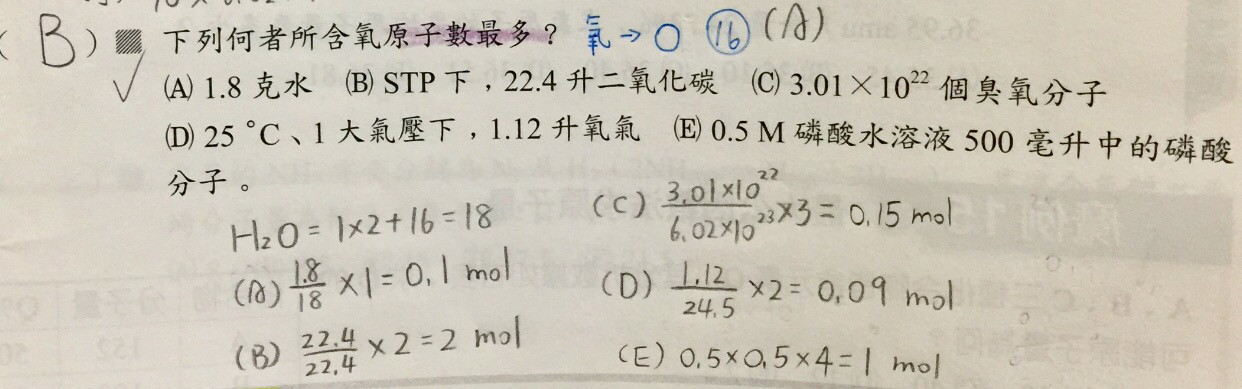 (B) 下列何者所含氧原子數最多? 氧→O ⑯ (A)
✓ (A) 1.8 克水 (B) STP 下,22.4 升二氧化碳 (C) 3.01×10²² 個臭氧分子
(D) 25 °C、1 大氣壓下,1.12 升氧氣 (E) 0.5 M 磷酸水溶液 500 毫升中的磷酸
分子。
H₂O = 1×2+16=18
(A) 1.8/18 ×1=0.1 mol
(B) 22.4/22.4 ×2=2 mol
(C) 3.01×10²²/6.02×10²³ ×3= 0.15 mol
(D) 1.12/24.5 ×2= 0.09 mol
(E) 0.5×0.5×4=1 mol